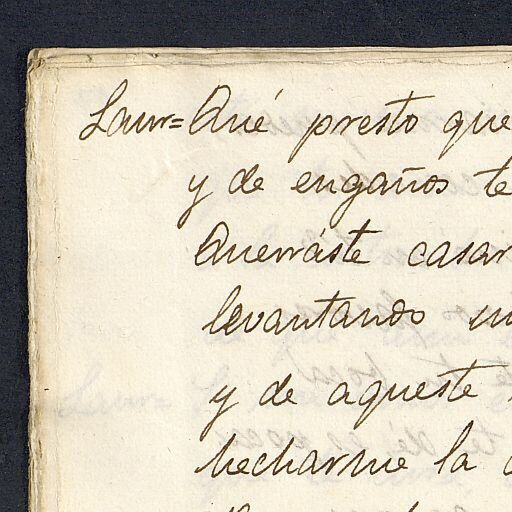 Laur= Qué presto que
y de engaños te
Querráste casar
levantando
y de aqueste
hecharme la